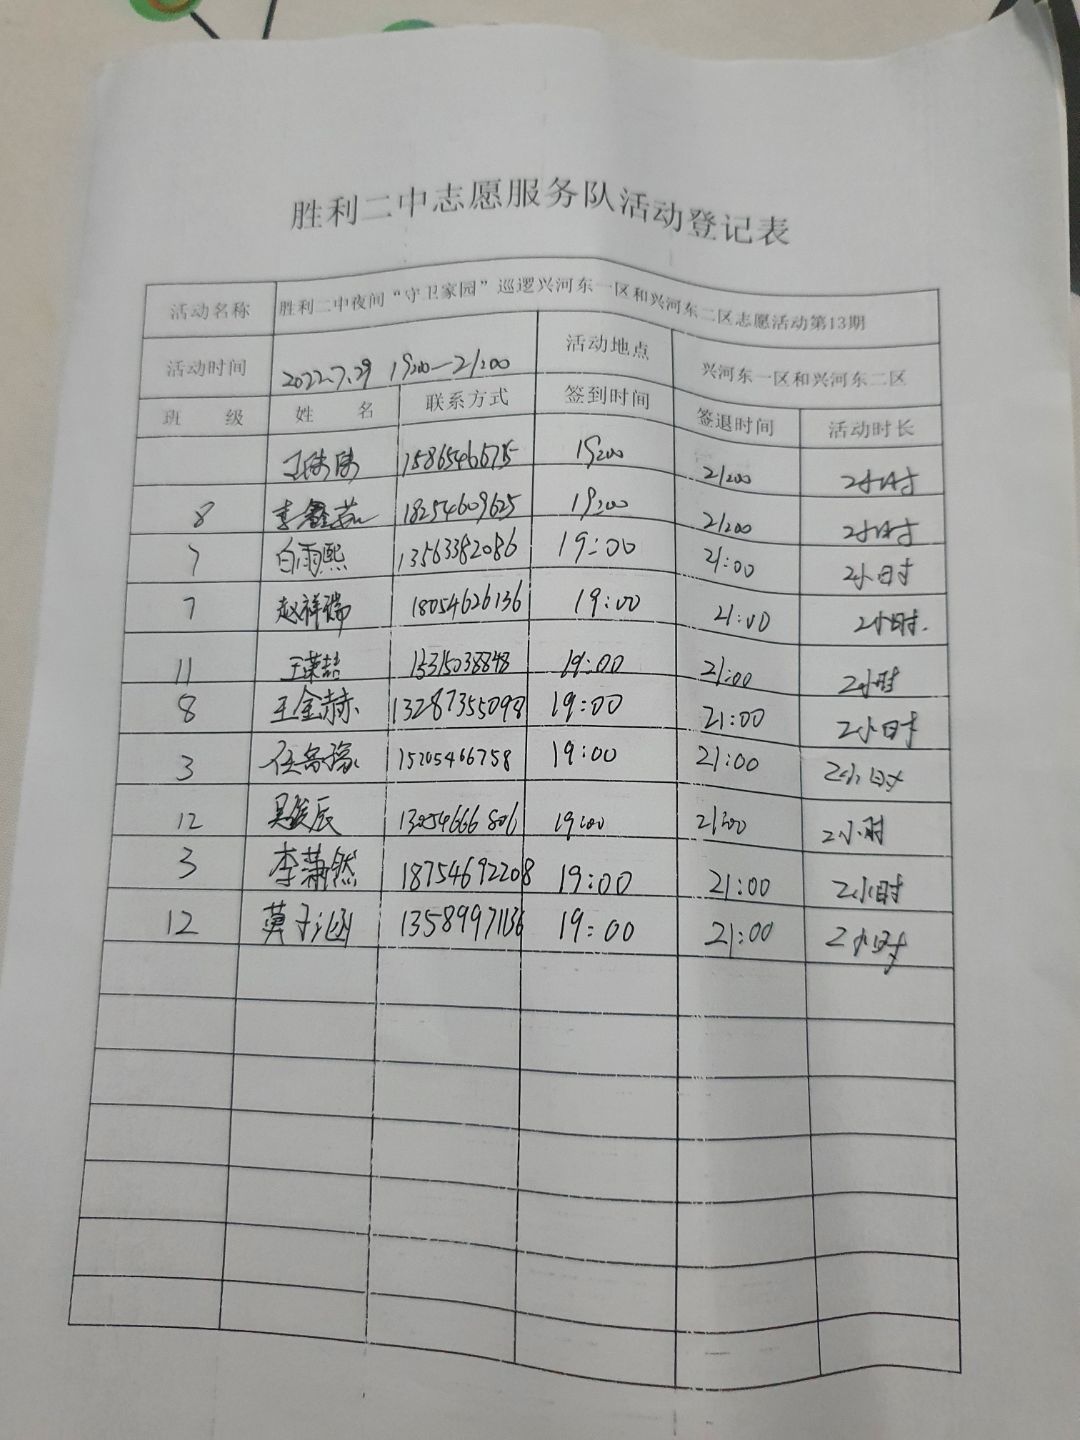 胜利二中志愿服务队活动登记表
活动名称 胜利二中夜间“守卫家园”巡逻兴河东一区和兴河东二区志愿活动第13期
活动时间 2022.7.29 19:00—21:00 活动地点 兴河东一区和兴河东二区
班 级 姓 名 联系方式 签到时间 签退时间 活动时长
15865466715 19:00 21:00 2小时
8 18254609625 19:00 21:00 2小时
7 白雨熙 13563382086 19:00 21:00 2小时
7 赵祥瑞 18054626136 19:00 21:00 2小时.
11 王荣喆 15315038848 19:00 21:00 2小时
8 王金赫 13287355098 19:00 21:00 2小时
3 15205466758 19:00 21:00 2小时
12 吴俊辰 13054666806 19:00 21:00 2小时
3 李萧然 18754692208 19:00 21:00 2小时
12 黄子涵 13589971136 19:00 21:00 2小时